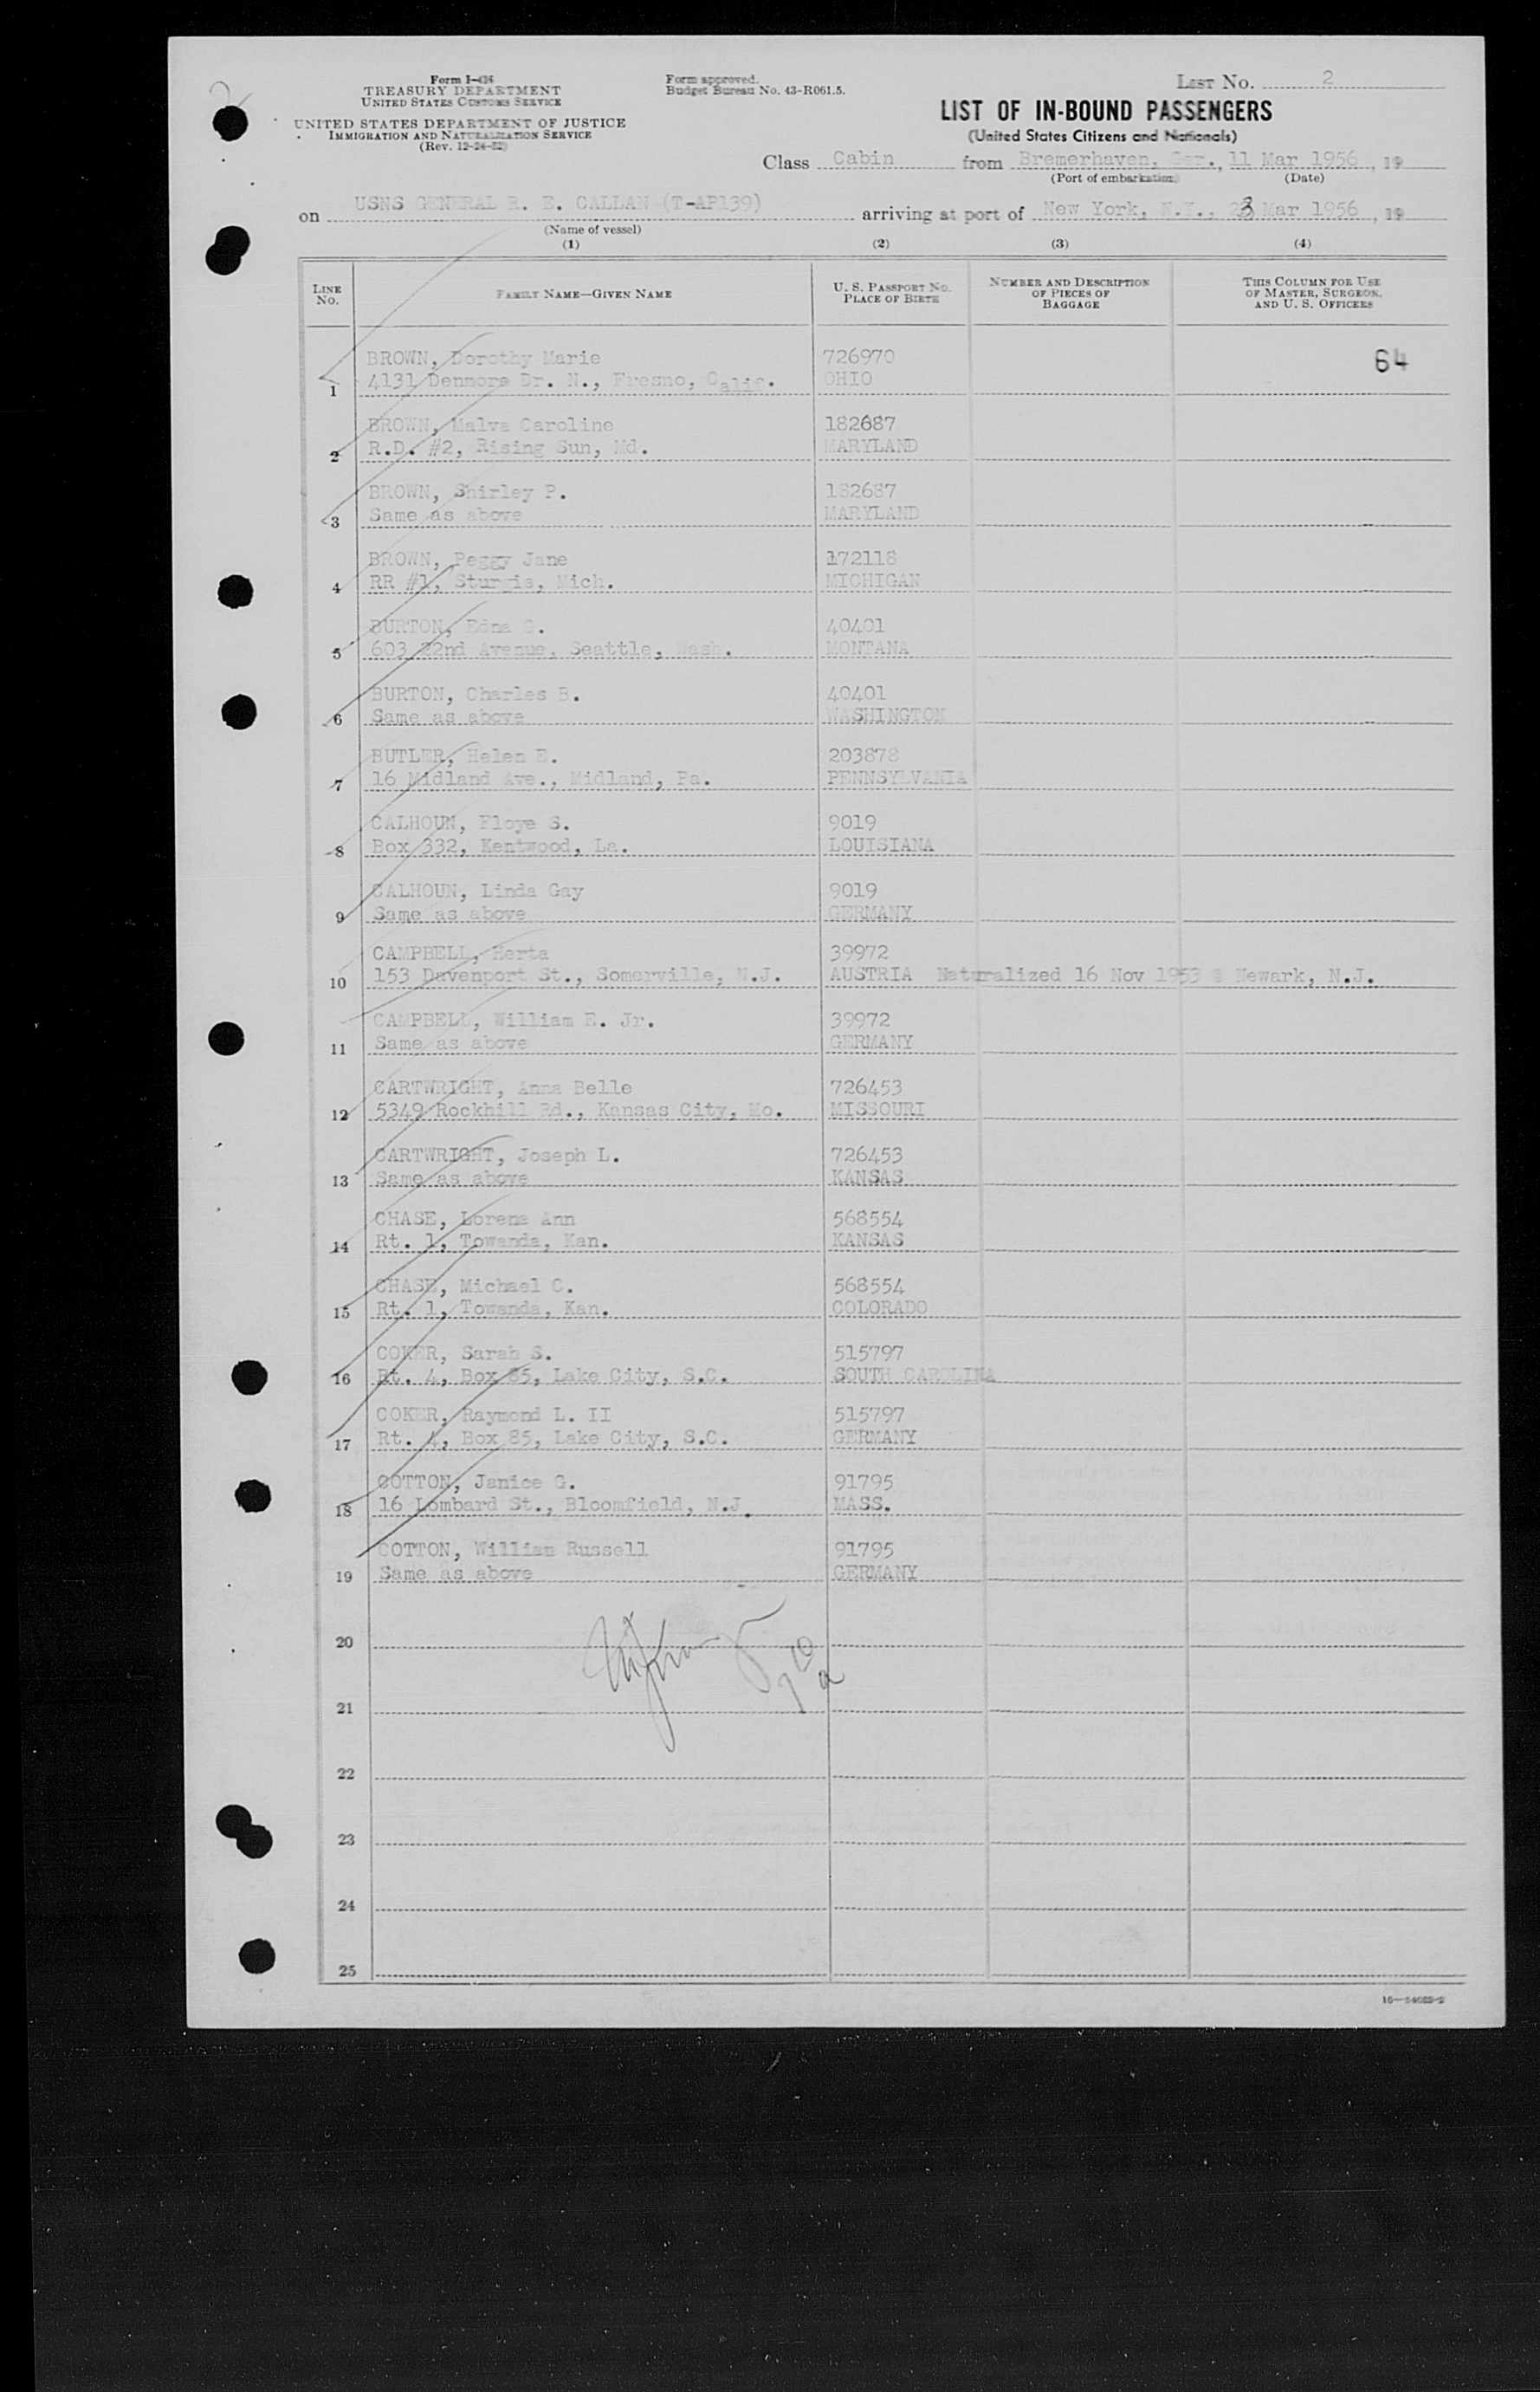 2
Form I-416
TREASURY DEPARTMENT
UNITED STATES CUSTOMS SERVICE
UNITED STATES DEPARTMENT OF JUSTICE
IMMIGRATION AND NATURALIZATION SERVICE
(Rev. 12-24-52)
Form approved.
Budget Bureau No. 43-R061.5.
LIST No. 2
LIST OF IN-BOUND PASSENGERS
(United States Citizens and Nationals)
Class Cabin from Bremerhaven, Ger., 11 Mar 1956, 19
(Port of embarkation) (Date)
on USNS GENERAL R. E. CALLAN (T-AP139) arriving at port of New York, N.Y., 23 Mar 1956, 19
(Name of vessel)
(1) (2) (3) (4)
LINE No. FAMILY NAME—GIVEN NAME U. S. PASSPORT No. PLACE OF BIRTH NUMBER AND DESCRIPTION OF PIECES OF BAGGAGE THIS COLUMN FOR USE OF MASTER, SURGEON, AND U. S. OFFICERS
BROWN, Dorothy Marie 726970 64
1 4131 Denmore Dr. N., Fresno, Calif. OHIO
BROWN, Malva Caroline 182687
2 R.D. #2, Rising Sun, Md. MARYLAND
BROWN, Shirley P. 182687
3 Same as above MARYLAND
BROWN, Peggy Jane 172118
4 RR #1, Sturgis, Mich. MICHIGAN
BURTON, Edna G. 40401
5 603 22nd Avenue, Seattle, Wash. MONTANA
BURTON, Charles B. 40401
6 Same as above WASHINGTON
BUTLER, Helen E. 203878
7 16 Midland Ave., Midland, Pa. PENNSYLVANIA
CALHOUN, Floye S. 9019
8 Box 332, Kentwood, La. LOUISIANA
CALHOUN, Linda Gay 9019
9 Same as above GERMANY
CAMPBELL, Herta 39972
10 153 Davenport St., Somerville, N.J. AUSTRIA Naturalized 16 Nov 1953 @ Newark, N.J.
CAMPBELL, William E. Jr. 39972
11 Same as above GERMANY
CARTWRIGHT, Anna Belle 726453
12 5349 Rockhill Rd., Kansas City, Mo. MISSOURI
CARTWRIGHT, Joseph L. 726453
13 Same as above KANSAS
CHASE, Lorena Ann 568554
14 Rt. 1, Towanda, Kan. KANSAS
CHASE, Michael C. 568554
15 Rt. 1, Towanda, Kan. COLORADO
COKER, Sarah S. 515797
16 Rt. 4, Box 85, Lake City, S.C. SOUTH CAROLINA
COKER, Raymond L. II 515797
17 Rt. 4, Box 85, Lake City, S.C. GERMANY
COTTON, Janice G. 91795
18 16 Lombard St., Bloomfield, N.J. MASS.
COTTON, William Russell 91795
19 Same as above GERMANY
20
21
22
23
24
25